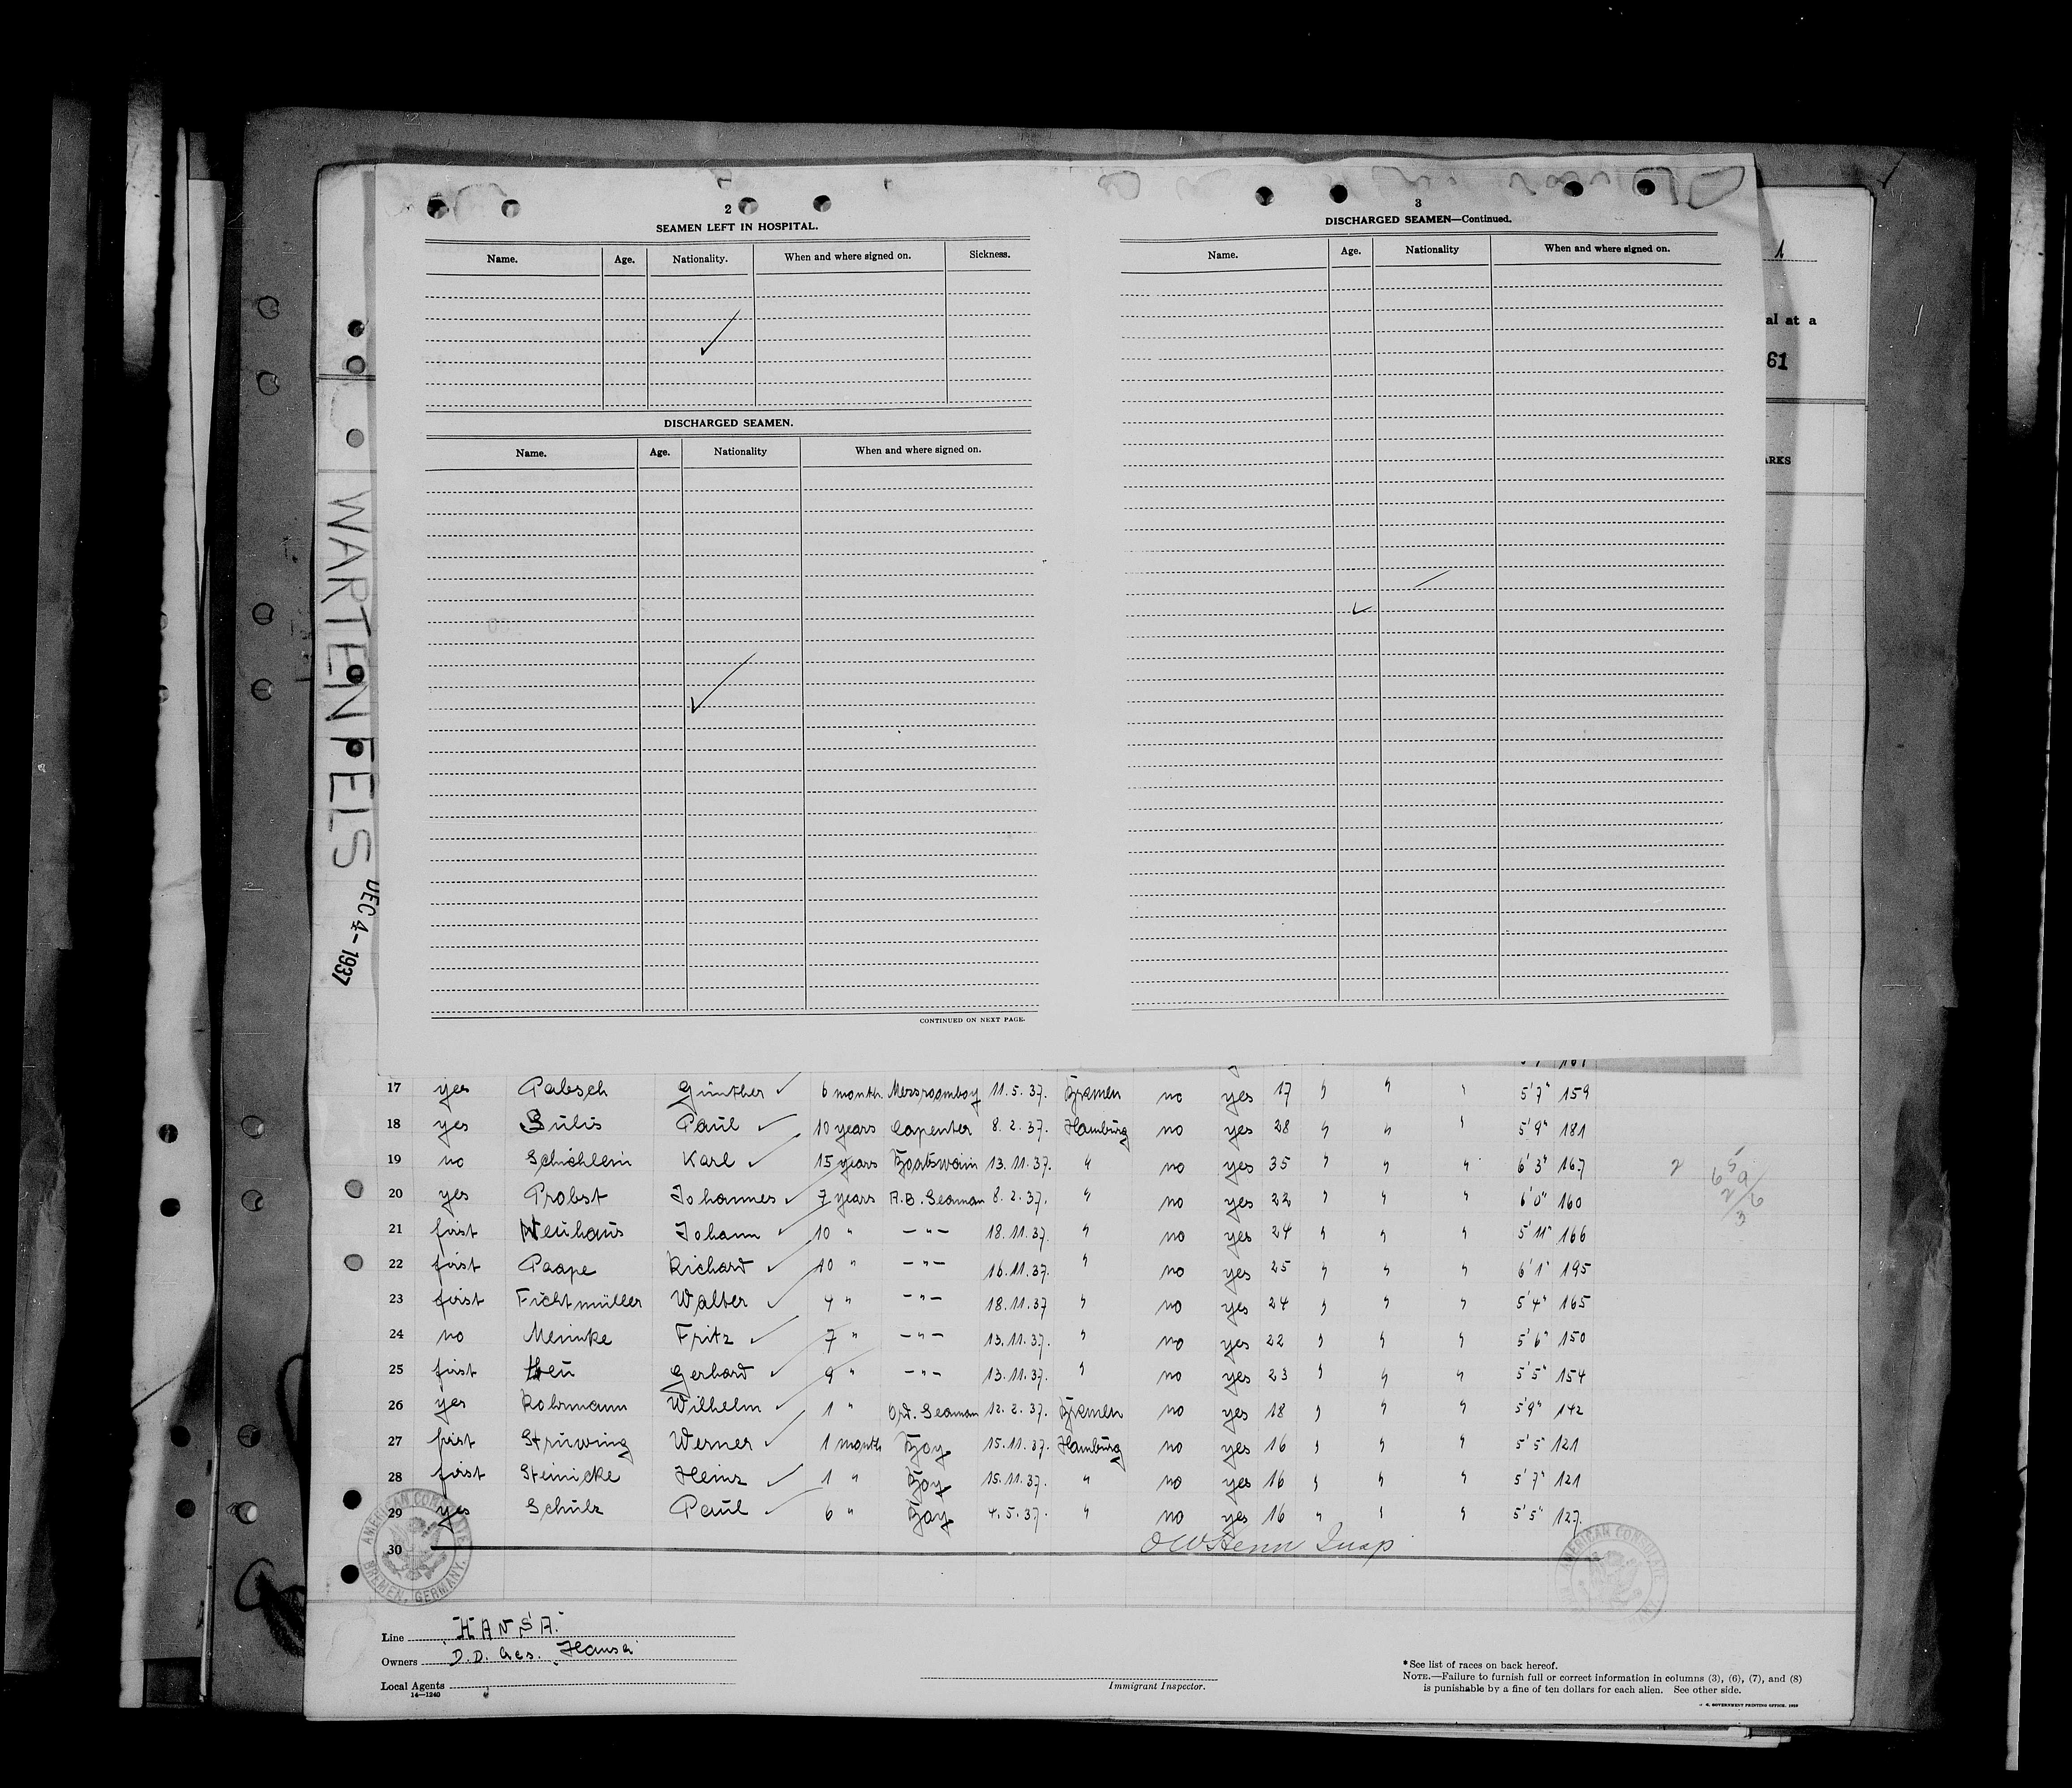 2
SEAMEN LEFT IN HOSPITAL.
Name. Age. Nationality. When and where signed on. Sickness.
DISCHARGED SEAMEN.
Name. Age. Nationality When and where signed on.
CONTINUED ON NEXT PAGE.
3
DISCHARGED SEAMEN—Continued.
Name. Age. Nationality When and where signed on.
1
al at a
61
ARKS
WARTENFELS
DEC 4-1937
17 yes Pabsch Günther 6 month Messroomboy 11.5.37. Bremen no yes 17 " " " 5'7" 159
18 yes Sulis Paul 10 years Capenter 8.2.37. Hamburg no yes 28 " " " 5'9" 181
19 no Schöhlein Karl 15 years Boatswain 13.11.37. " no yes 35 " " " 6'3" 167
20 yes Probst Johannes 7 years A.B. Seaman 8.2.37. " no yes 22 " " " 6'0" 160
21 first Neuhaus Johann 10 " —"— 18.11.37. " no yes 24 " " " 5'11" 166
22 first Paape Richard 10 " —"— 16.11.37. " no yes 25 " " " 6'1" 195
23 first Fichtmüller Walter 4 " —"— 18.11.37 " no yes 24 " " " 5'4" 165
24 no Meinke Fritz 7 " —"— 13.11.37. " no yes 22 " " " 5'6" 150
25 first Heu Gerhard 9 " —"— 13.11.37. " no yes 23 " " " 5'5" 154
26 yes Rohrmann Wilhelm 1 " Ord. Seaman 12.2.37. Bremen no yes 18 " " " 5'9" 142
27 first Strüwing Werner 1 month Boy 15.11.37. Hamburg no yes 16 " " " 5'5 121
28 first Steinicke Heinz 1 " Boy 15.11.37. " no yes 16 " " " 5'7" 121
29 yes Schulz Paul 6 " Boy 4.5.37. " no yes 16 " " " 5'5" 127.
30
AMERICAN CONSULATE
BREMEN, GERMANY.
Line "HANSA."
Owners D.D. Ges. "Hansa"
Local Agents
14—1240
Immigrant Inspector.
*See list of races on back hereof.
NOTE.—Failure to furnish full or correct information in columns (3), (6), (7), and (8)
is punishable by a fine of ten dollars for each alien. See other side.